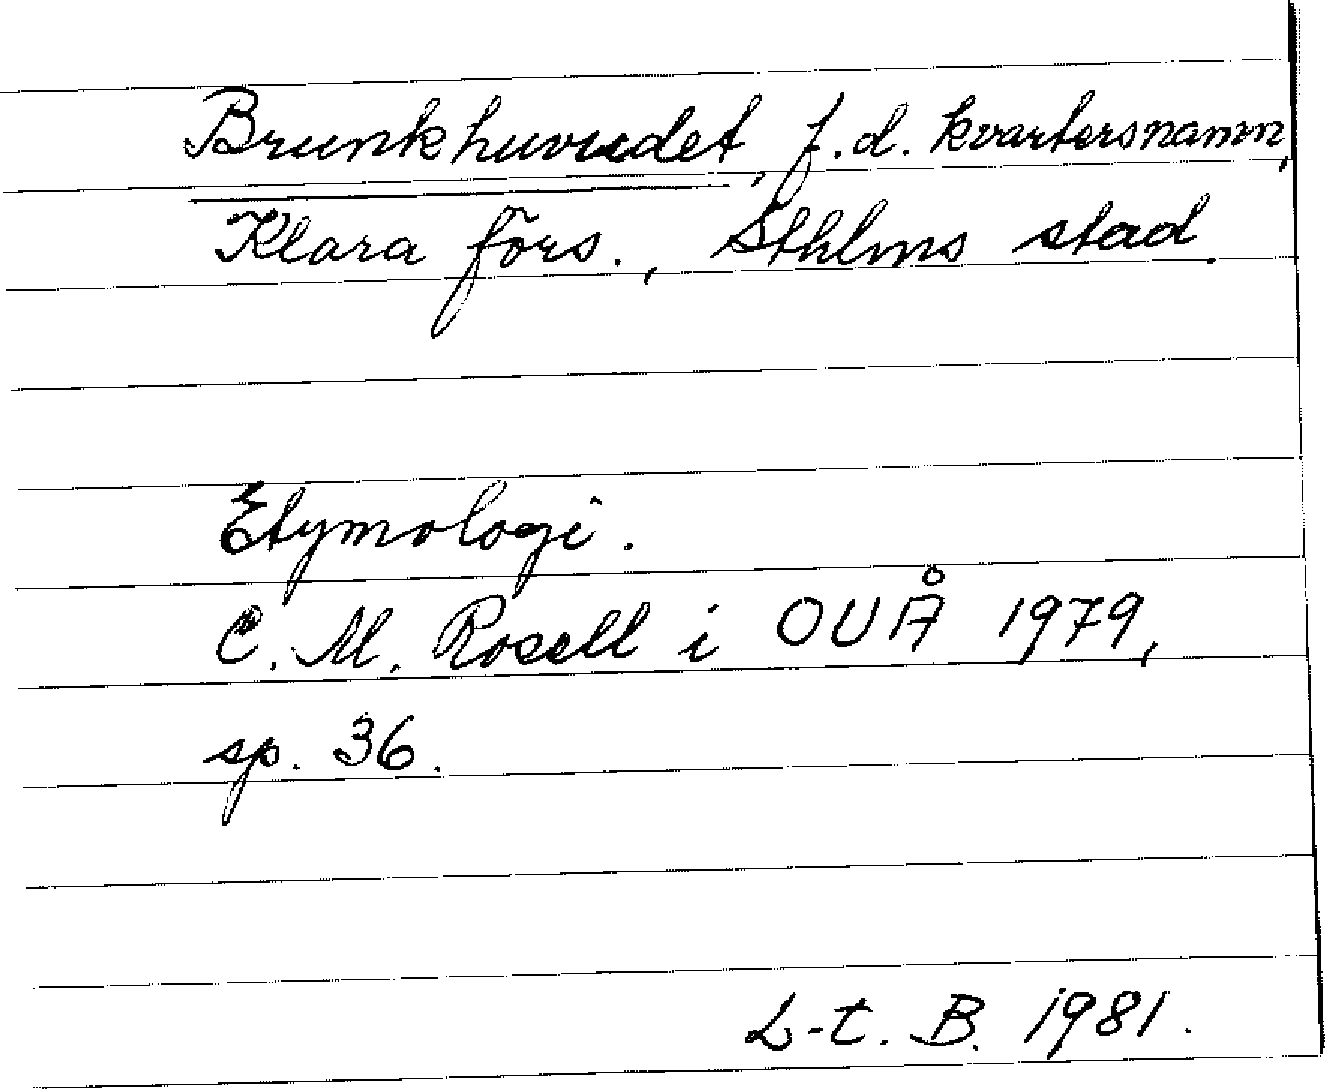 Brunkhuvudet, f.d. kvartersnamn,
Klara förs., Sthlms stad.
Etymologi.
C. M. Rosell i OUÅ 1979,
sp. 36.
L-t. B. 1981.